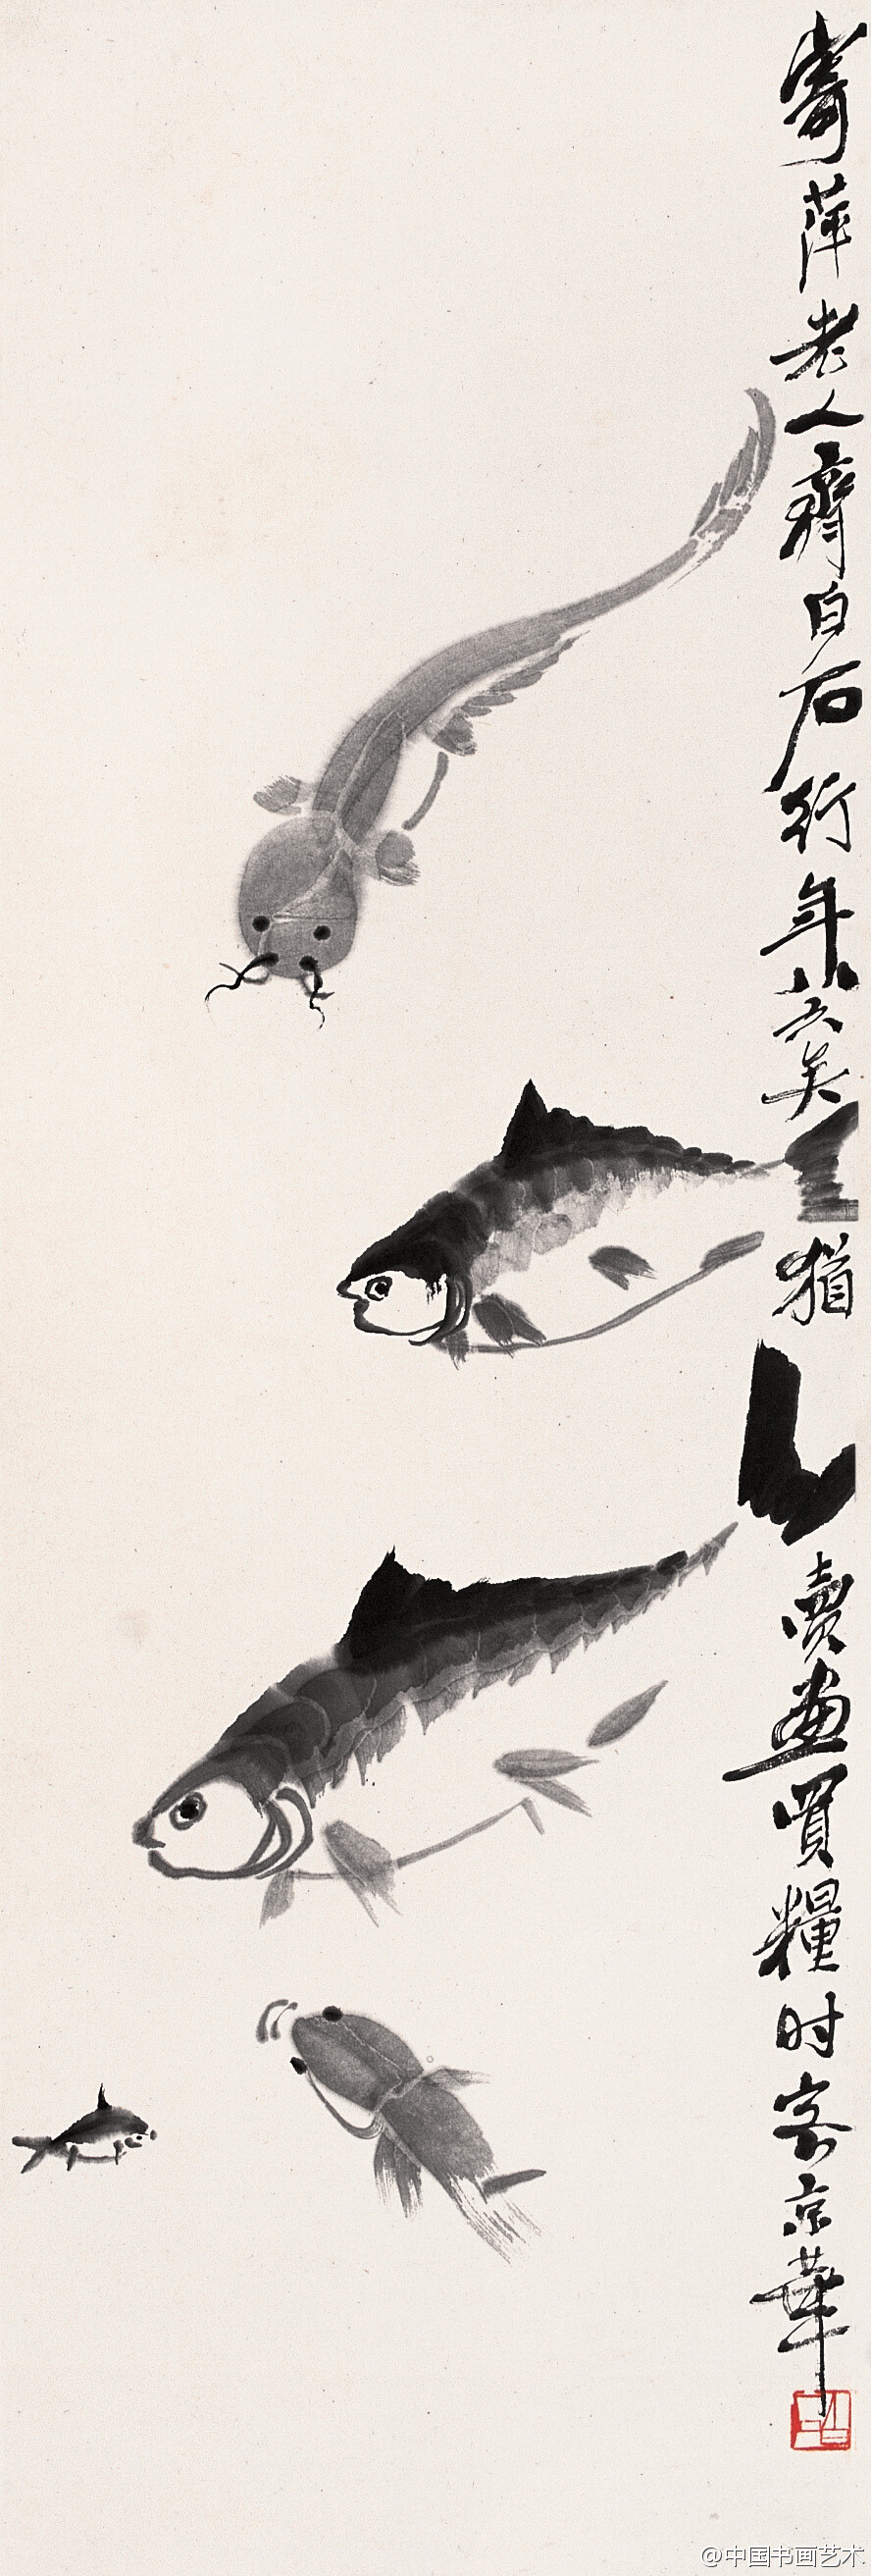 寄萍老人齊白石行年八十六矣猶賣畫買糧时客京華
白石
@中国书画艺术